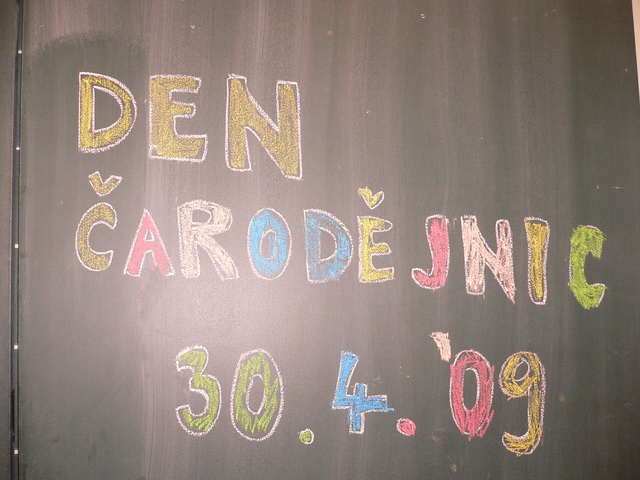 DEN
ČARODĚJNIC
30.4.'09